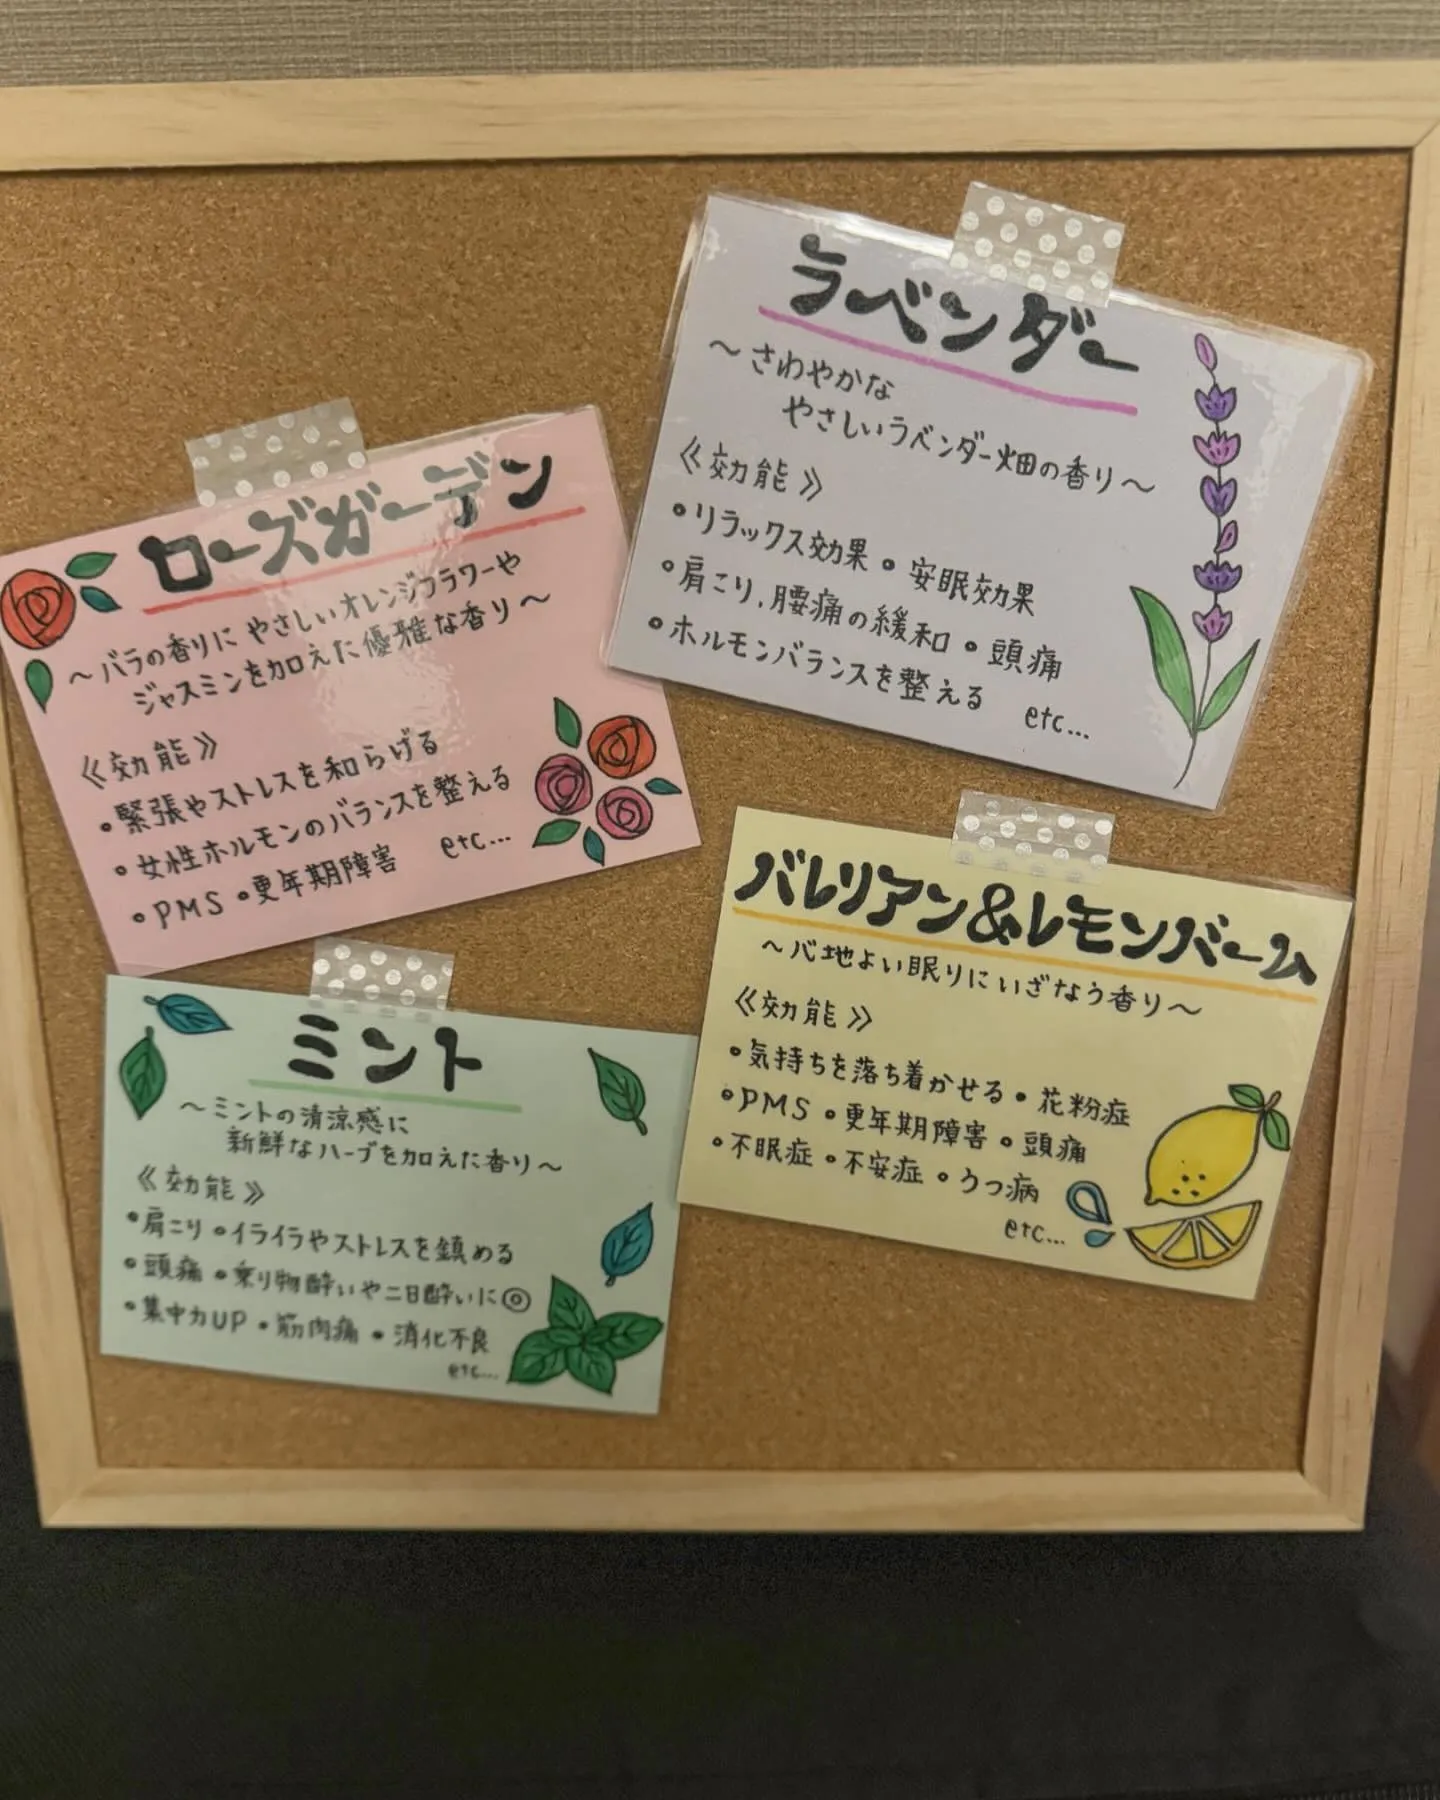 ラベンダー
～さわやかな
やさしいラベンダー畑の香り～
《効能》
•リラックス効果 •安眠効果
•肩こり、腰痛の緩和 •頭痛
•ホルモンバランスを整える
etc...
ローズガーデン
～バラの香りにやさしいオレンジフラワーや
ジャスミンを加えた優雅な香り～
《効能》
•緊張やストレスを和らげる
•女性ホルモンのバランスを整える
•PMS •更年期障害 etc...
バレリアン&レモンバーム
～心地よい眠りにいざなう香り～
《効能》
•気持ちを落ち着かせる •花粉症
•PMS •更年期障害 •頭痛
•不眠症 •不安症 •うつ病
etc...
ミント
～ミントの清涼感に
新鮮なハーブを加えた香り～
《効能》
•肩こり •イライラやストレスを鎮める
•頭痛 •乗り物酔いや二日酔いに◎
•集中力UP •筋肉痛 •消化不良
etc...